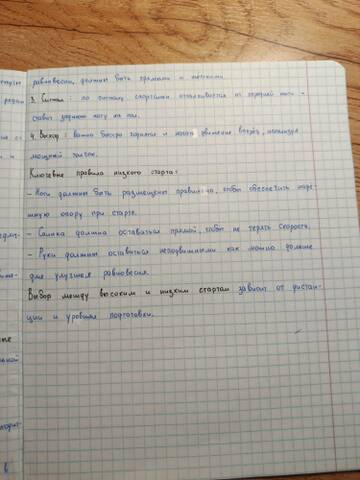 равновесии, должны быть прямыми и жёсткими.
3. Сигнал: по сигналу спортсмен отталкивается от передней ноги и
ставит заднюю ногу на пол.
4. Выход: важно быстро подняться и начать движение вперёд, используя
мощный толчок.
Ключевые правила низкого старта:
- Ноги должны быть размещены правильно, чтобы обеспечить хоро-
шую опору при старте.
- Спина должна оставаться прямой, чтоб не терять скорость.
- Руки должны оставаться неподвижными как можно дольше
для улучшая равновесия.
Выбор между высоким и низким стартом зависит от дистан-
ции и уровня подготовки.